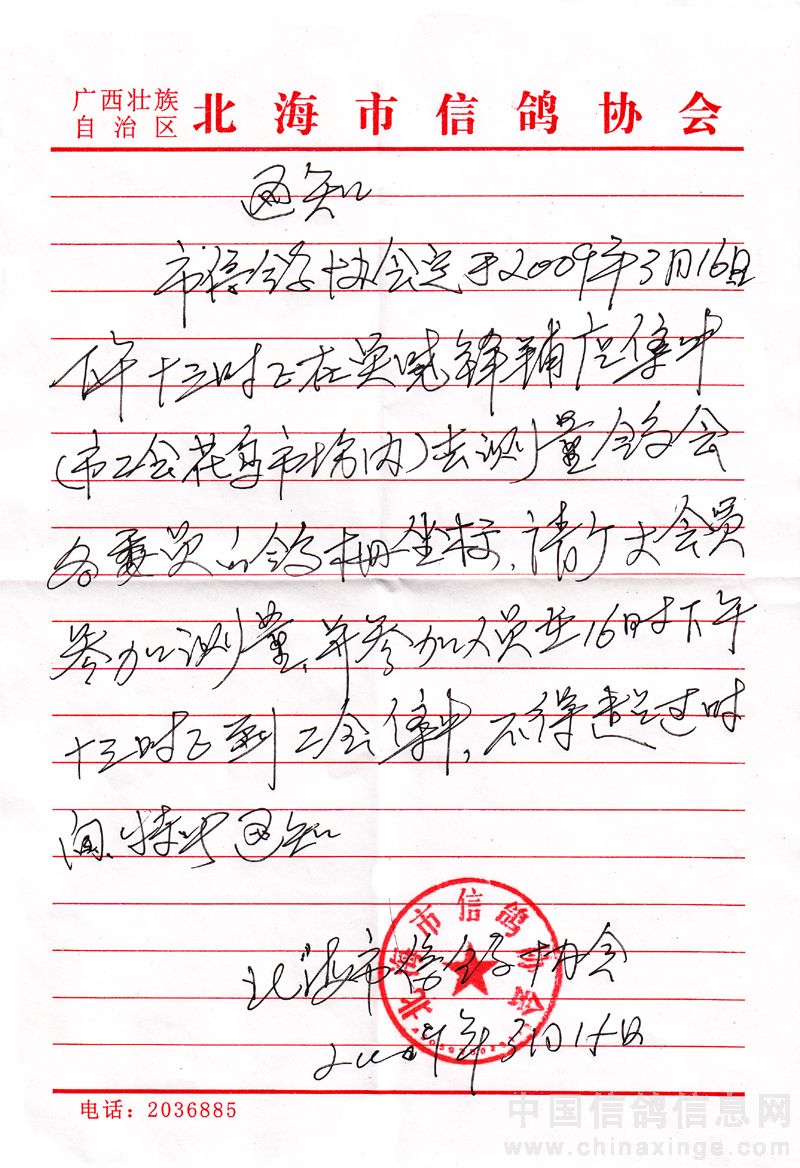 广西壮族
自治区 北海市信鸽协会
通知
市信鸽协会定于2009年3月16日
下午十三时正在吴晓锋铺店集中
(市工会花鸟市场内)去测量鸽会
各委员的鸽棚坐标,请广大会员
参加测量,并参加人员在16日下午
十三时正到工会集中,不得超过时
间,特此通知
北海市信鸽协会
2009年3月15日
北海市信鸽协会
电话:2036885
中国信鸽信息网
www.chinaxinge.com